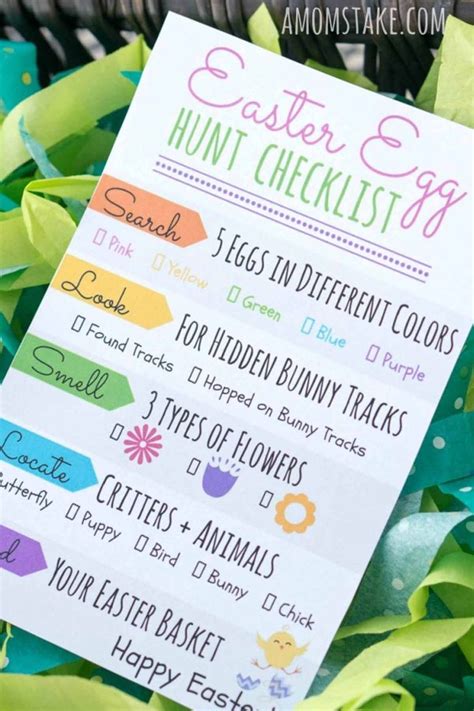 AMOMSTAKE.COM
Easter Egg
HUNT CHECKLIST
Search 5 EGGS IN DIFFERENT COLORS
Pink Yellow Green Blue Purple
Look FOR HIDDEN BUNNY TRACKS
Found Tracks Hopped on Bunny Tracks
Smell 3 TYPES OF FLOWERS
Locate CRITTERS + ANIMALS
Butterfly Puppy Bird Bunny Chick
YOUR EASTER BASKET
Happy Easter